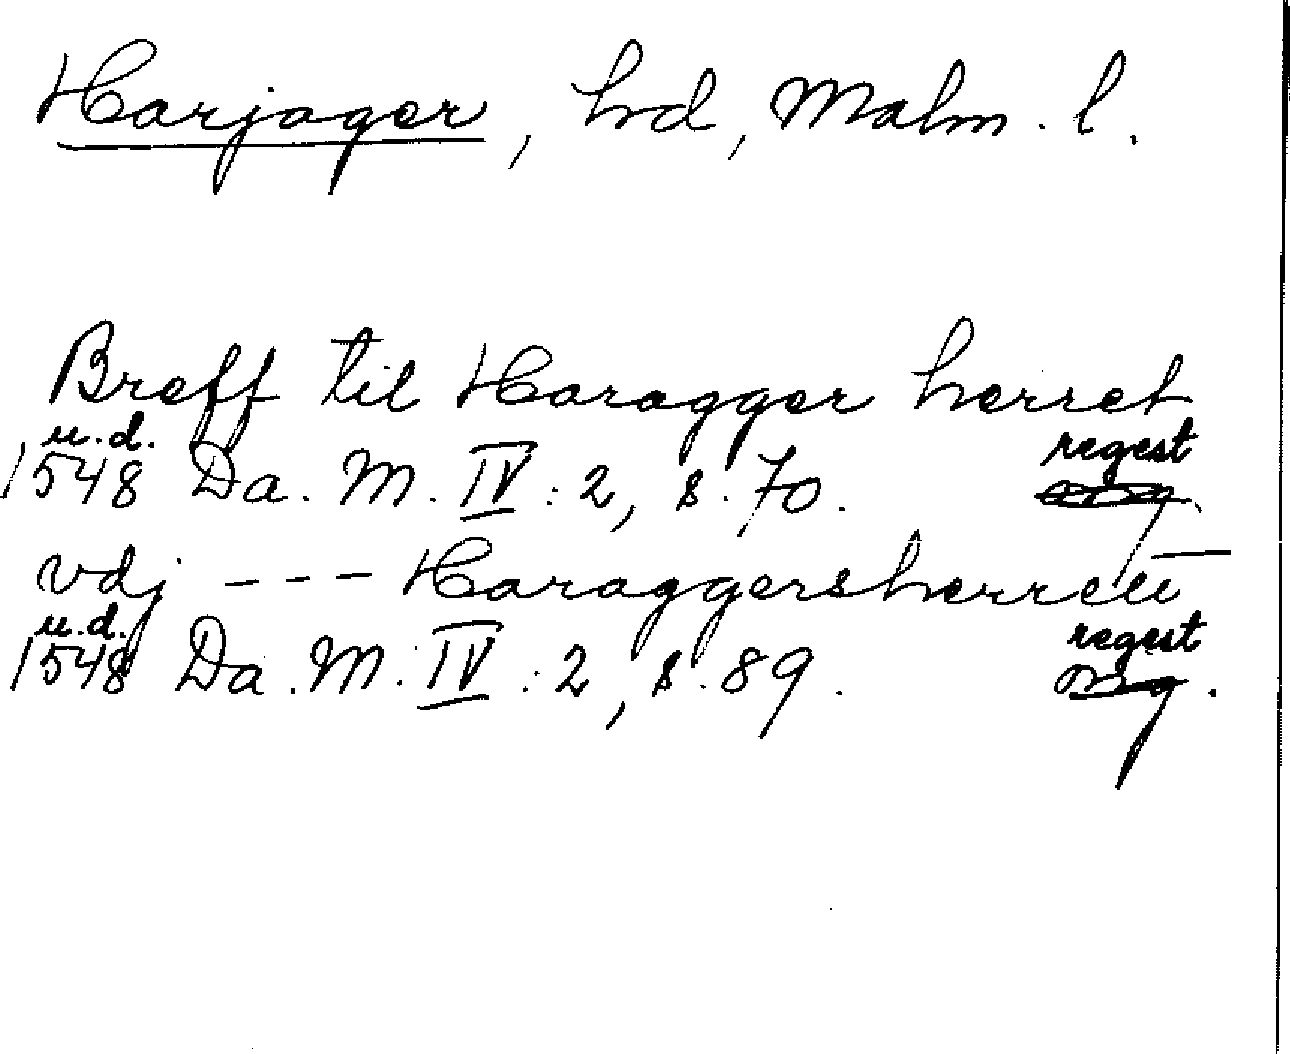 Harjager, hd, Malm. l.
Breff til Haragger herret
u.d. regest
1548 Da. M. IV: 2, s. 70.
vdj --- Haraggersherrett
u.d. regest
1548 Da. M. IV: 2, s. 89.